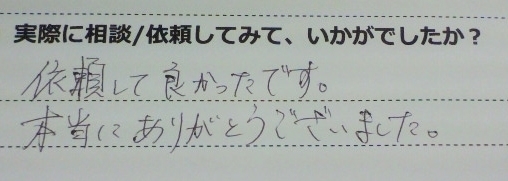 実際に相談/依頼してみて、いかがでしたか？
依頼して良かったです。
本当にありがとうございました。